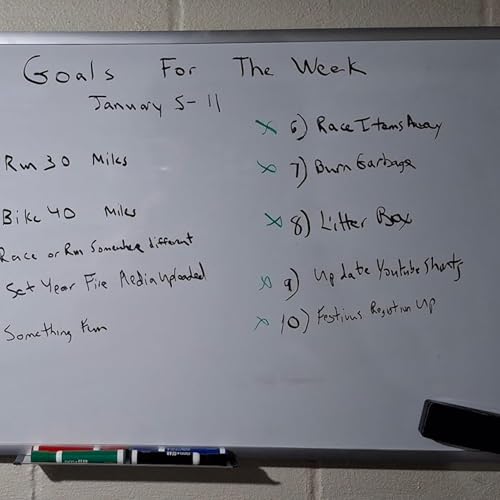 Goals For The Week
January 5-11
Run 30 Miles
Bike 40 Miles
Race or Run Somewhere different
Get Year Fire Media Uploaded
Something Fun
x 6) Race Items Away
x 7) Burn Garbage
x 8) Litter Box
x 9) Update Youtube Shorts
x 10) Festivus Registion Up